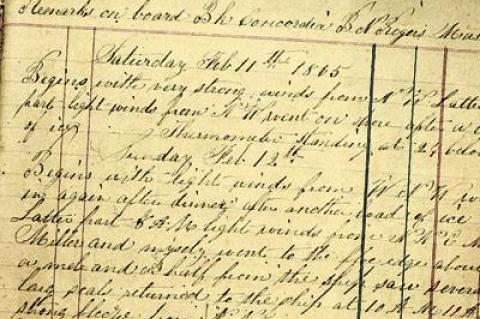 Remarks on board Bk Concordia B N Rogers Mas
Saturday Feb 11th 1865
Begins with very strong winds from N W Latter
part light winds from N W went on shore after a
of ice Thermometer Standing at 24 below
Sunday Feb 12th
Begins with light winds from W N W
ing again after dinner after another load of ice
Latter part 8 A M light winds from N W
Miller and myself went to the floe edge about
a mile and a half from the ship saw several
large seals returned to the ship at 10 A M
strong